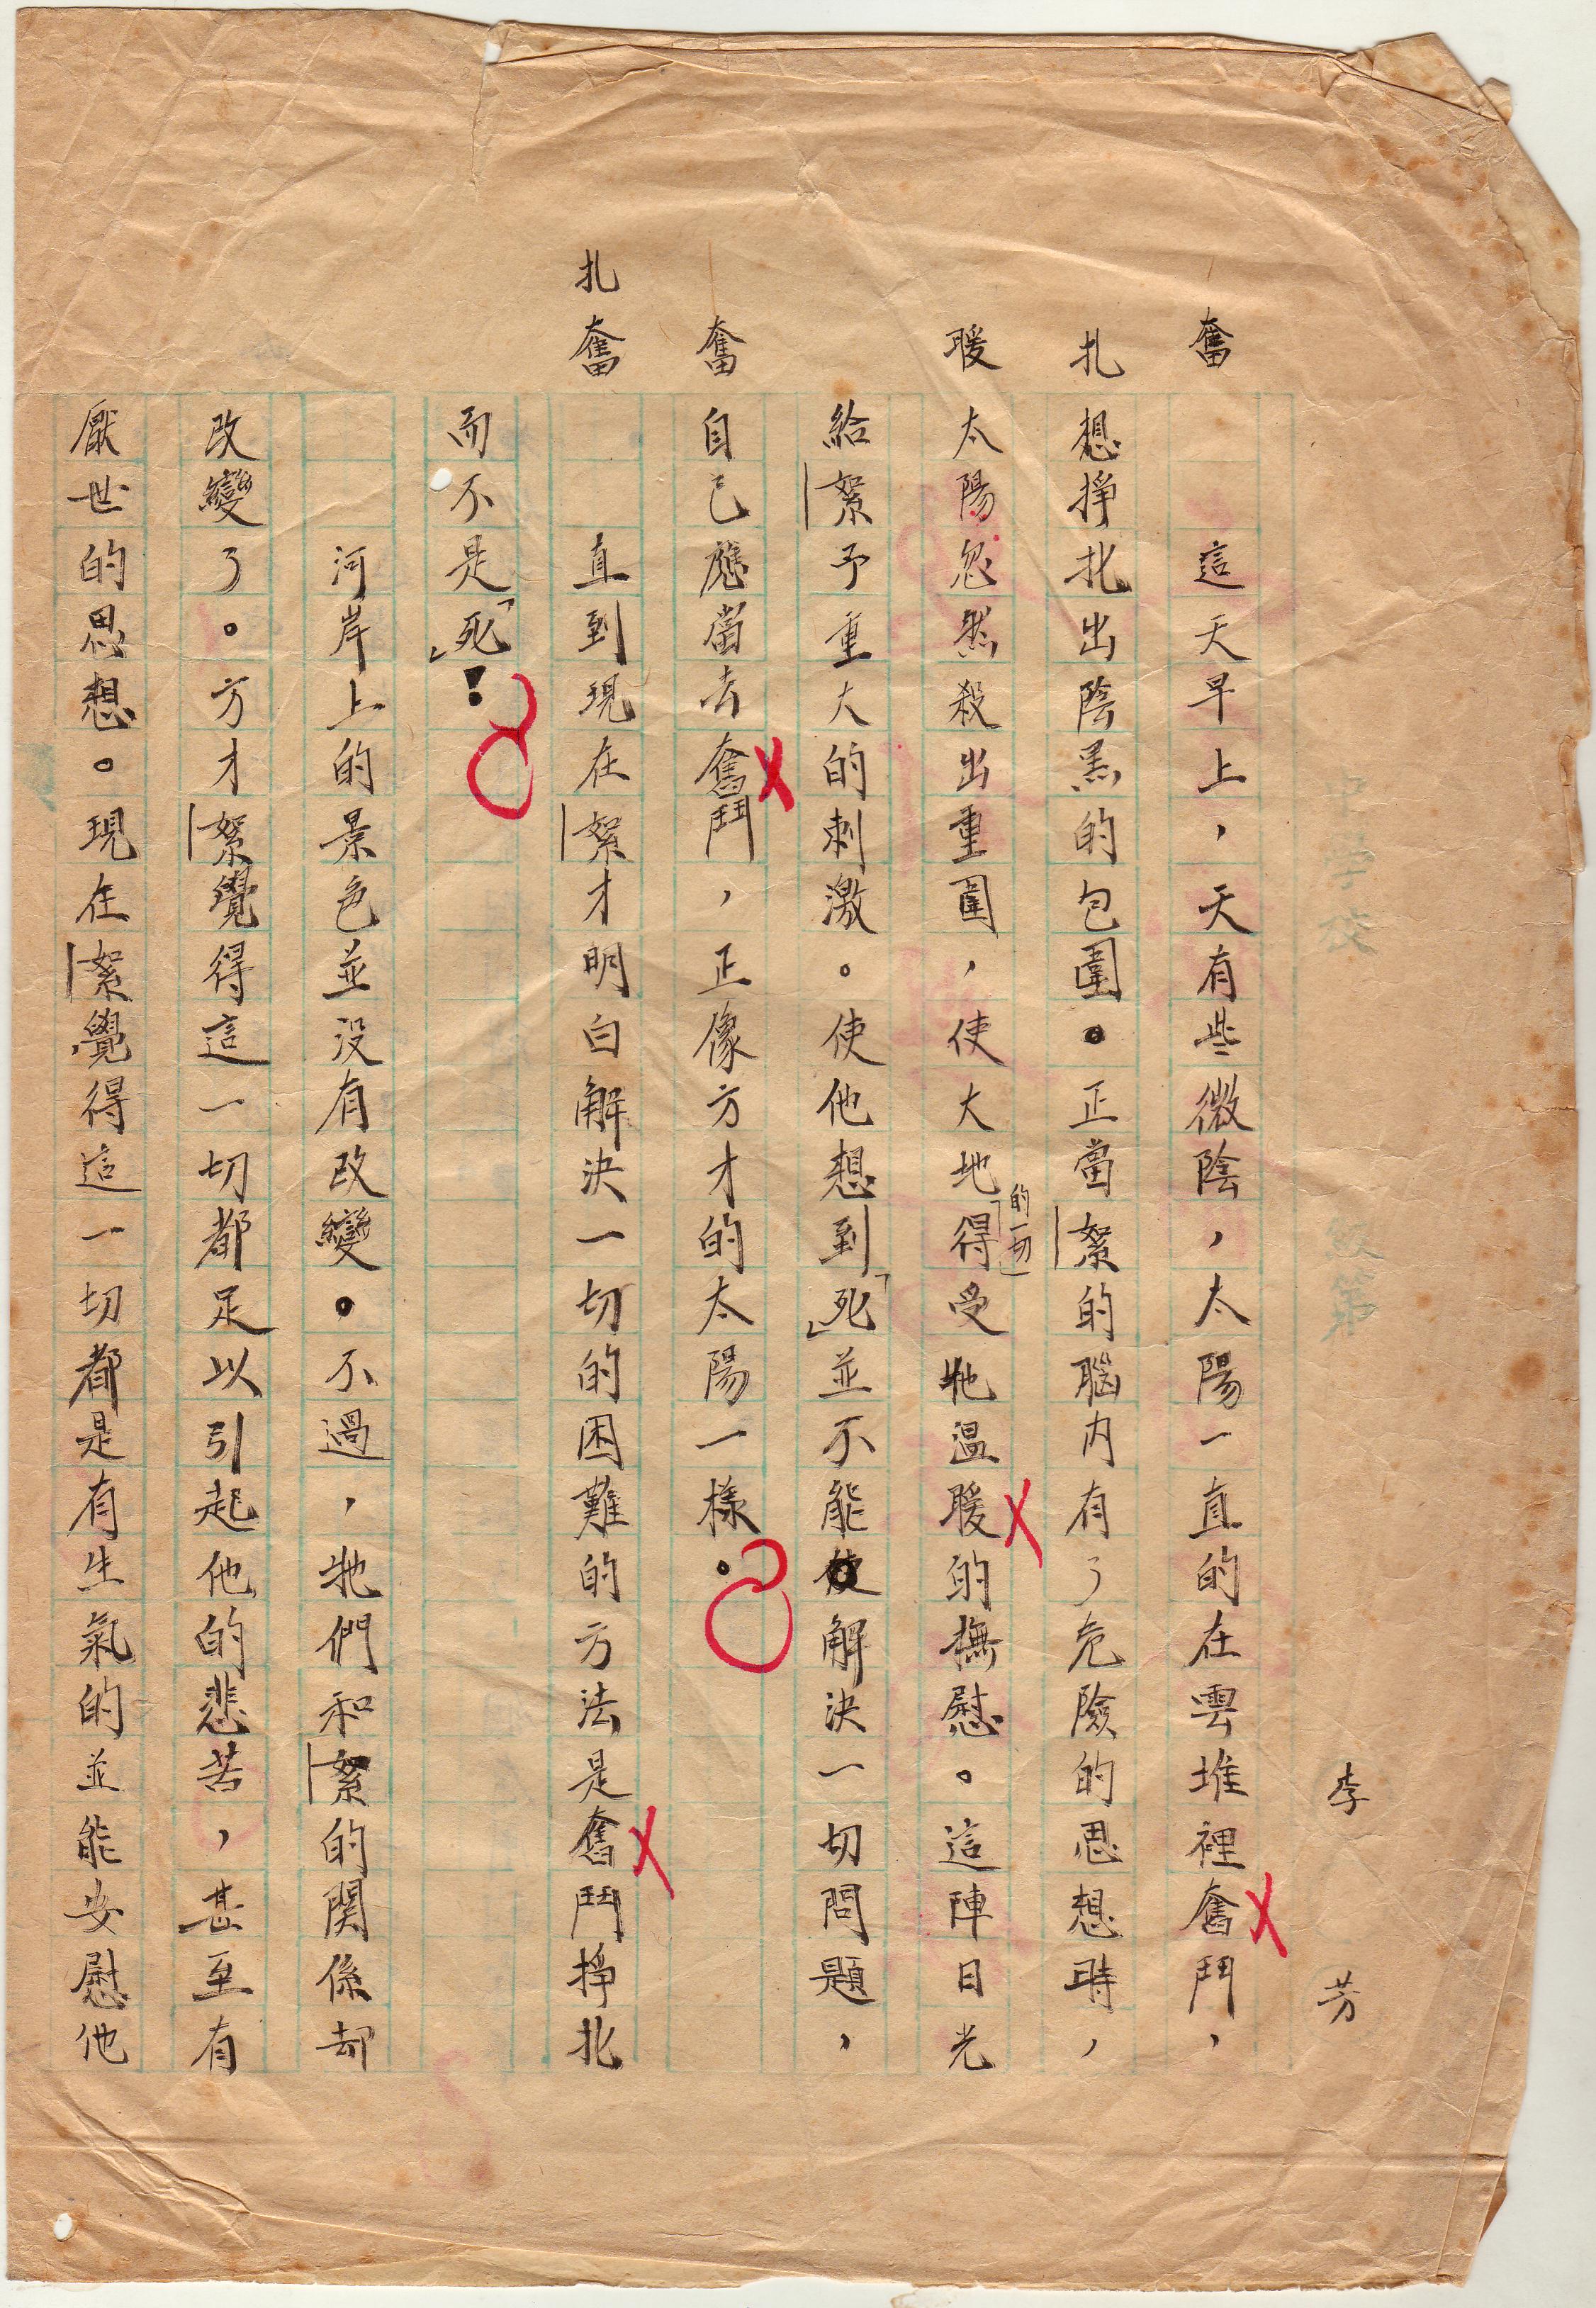 李芳
奮
這天早上，天有些微陰，太陽一直的在雲堆裡奮鬥，
扎
想掙扎出陰黑的包圍。正當絮的腦内有了危險的思想時，
暖
太陽忽然殺出重圍，使大地「的一切」得受牠温暖的撫慰。這陣日光
給絮予重大的刺激。使他想到「死」並不能解決一切問題，
奮
自己應當去奮鬥，正像方才的太陽一樣。
扎奮
直到現在絮才明白解決一切的困難的方法是奮鬥掙扎
而不是「死」！
河岸上的景色並没有改變。不過，牠們和絮的関係却
改變了。方才絮覺得這一切都足以引起他的悲苦，甚至有
厭世的思想。現在絮覺得這一切都是有生氣的並能安慰他